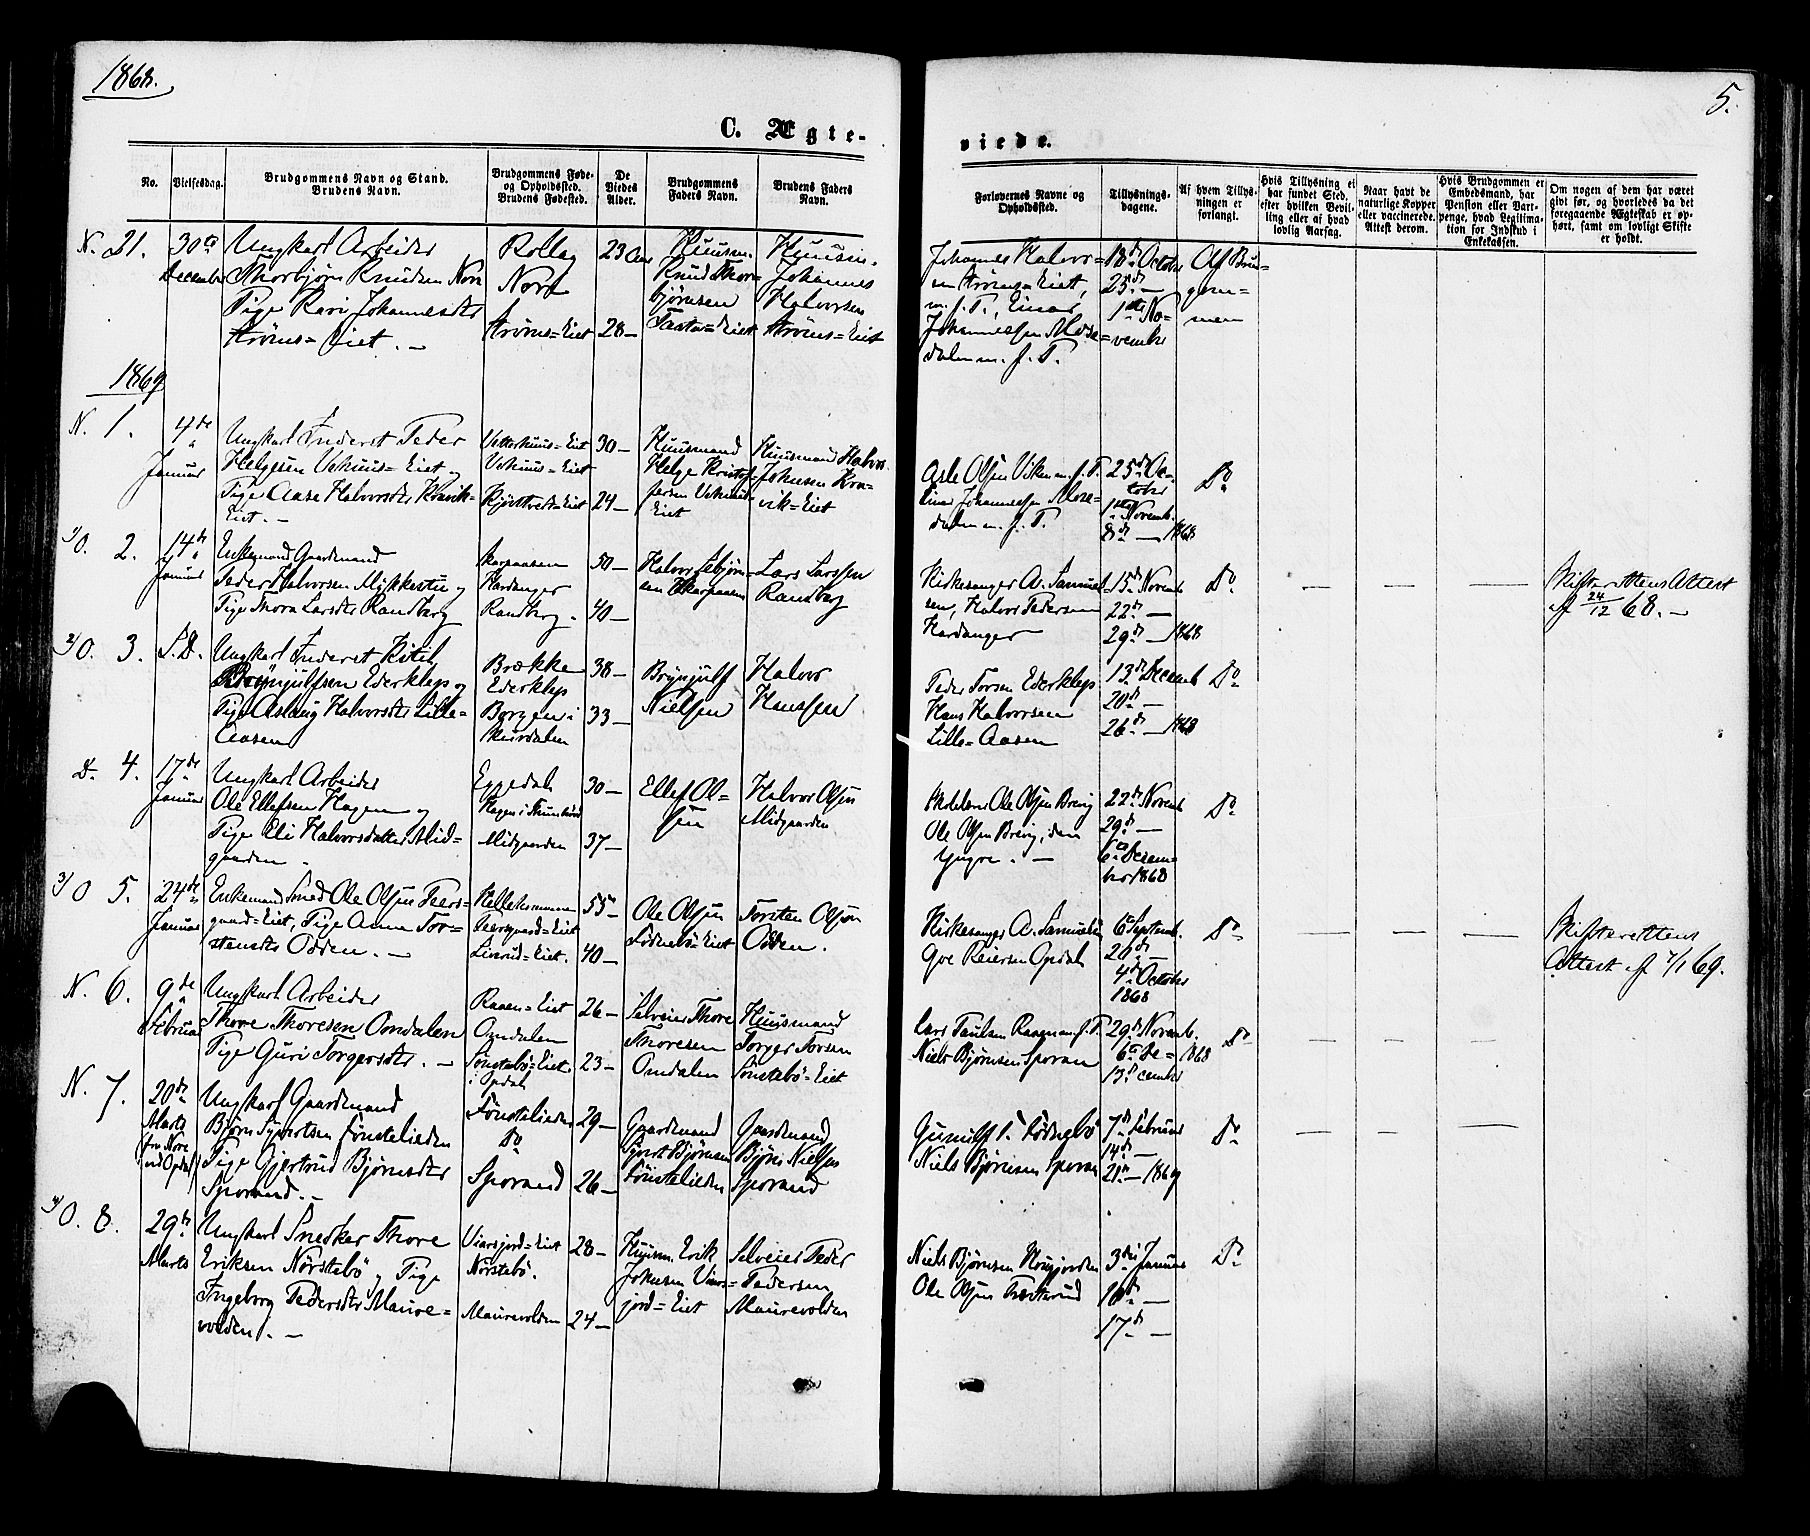 1868.
5.
C. Ægte-
viede.
No.
Vielsesdag.
Brudgommens Navn og Stand.
Brudens Navn.
Brudgommens Føde-
og Opholdssted.
Brudens Fødested.
De
Viedes
Alder.
Brudgommens
Faders Navn.
Brudens Faders
Navn.
Forlovernes Navne og
Opholdssted.
Tillysnings-
dagene.
Af hvem Tillys-
ningen er
forlangt.
Hvis Tillysning ei
har fundet Sted,
efter hvilken Bevil-
ling eller af hvad
lovlig Aarsag.
Naar havt de
naturlige Kopper
eller vaccinerede.
Attest derom.
Hvis Brudgommen er
Embedsmand, har
Pension eller Vart-
penge, hvad Legitima-
tion for Indskud i
Enkekassen.
Om nogen af dem har været
givt før, og hvorledes da det
foregaaende Ægteskab er op-
hørt, samt om lovligt Skifte
er holdt.
N. 21.
30te
December
Ungkarl Arbeider
Thorbjørn Knudsen Nore
Pige Kari Johannesdtr
Strøms=Eiet. —
Rollag
Nore
Strøms=Eiet
23 Aar
28 —
Huusm.
Knud Thor-
bjørnsen
Huusm.
Johannes
Halvorsen
Strøms=Eiet
Johannes Halvor-
sen Strøms=Eiet,
m. f. P., Einar
Johannessen Mose-
dalen m. f. P.
18de October
25de —
1ste No-
vembr
Af Brud-
gom-
men
1869
N. 1.
4de
Januar
Ungkarl Inderst Peder
Helgesen Vehuus=Eiet og
Pige Aase Halvorsdtr Kravik-
Eiet. —
Vehuus=Eiet
30 —
24 —
Huusmand
Helge Kristof-
fersen Vehuus=
Eiet
Huusmand Halvor
Johnsen Kra-
vik=Eiet
Asle Olsen Viken m. f. P.
Einar Johannessen Mose-
dalen m. f. P.
25de Oc-
tober
1ste Novemb.
8de — 1868
Do
1) O. 2.
14de
Januar
Enkemand Gaardmand
Peder Halvorsen Mykkestu og
Pige Thora Larsdtr Ramberg
Hardanger
Ramberg.
50 —
40 —
Lars Larssen
Ramberg
Kirkesanger A. Samuel-
sen, Halvor Pedersen
Hardanger
15de Novemb
22de —
29de — 1868
Do
Skifterettens Attest
af 24/12 68. —
2) O. 3.
S. D.
Ungkarl Inderst Kittil
Brynjulfsen Ederklep og
Pige Aslaug Halvorsdtr Lille-
Aasen
Brække
Ederklep
Borgen i
Skurdalen
38 —
33 —
Brynjulf
Nielsen
Halvor
Hanssen
Peder Torsen Ederklep
Hans Halvorsen
Lille=Aasen
13de Decemb
20de —
26de — 1868
Do
D. 4.
17de
Januar
Ungkarl Arbeider
Ole Ellefsen Hagen og
Pige Eli Halvorsdatter Mid-
gaarden.
Eggedal
Midgaarden
30 —
37 —
Ellef Ol-
sen
Halvor Olsen
Midgaarden
Ole Olsen Breivig, den
yngre. —
22de Novemb
29de —
6te Decem-
ber 1868
Do
3) O 5.
24de
Januar
Enkemand Smed Ole Olsen Peers-
gaard=Eiet, Pige Anne Tor-
stensdtr Odden. —
Peersgaard=Eiet
Liverud=Eiet.
55 —
40 —
Ole Olsen
Torsten Olsen
Odden.
Kirkesanger A. Samuelsen
Gro Reiersen Opdal
6te Septemb.
20de —
4de October
1868
Do
Skifterettens
Attest af 7/1 69.
N. 6.
9de
Februar
Ungkarl Arbeider
Thore Thoresen Omdalen
Pige Guri Torgersdtr. —
Raaen=Eiet
Omdalen
Sønstebø=Eiet
i Opdal
26 —
23 —
Selveier Thore
Thoresen
Omdalen
Huusmand
Torger Torsen
Sønstebø=Eiet
Lars Paulsen Raaen m. f. P.
Niels Bjørnsen Sporan
29de Novemb.
6te De- 1868
13de cember
Do
N. 7.
20de
Marts
fra Nore
ved Opdal
Ungkarl Gaardmand
Bjørn Syvertsen Fønstelieden
Pige Gjertrud Bjørnsdtr
Sporand. —
Fønstelieden
Do
Sporand
29 —
26 —
Gaardmand
Syvert Bjørnsen
Fønstelieden
Gaardmand
Bjørn Nielsen
Sporand
Gunulf T. Fødnebø
Niels Bjørnsen Sporan
7de Februar
14de —
21de — 1869
Do
4) O. 8.
29de
Marts
Ungkarl Snedker Thore
Eriksen Nørstebø, Pige
Ingeborg Pedersdtr Maure-
volden. —
Nørstebø.
Maurevolden
28 —
24 —
Huusm. Erik
Johnsen
jord=Eiet
Selveier Peder
Pedersen
Maurevolden
Niels Bjørnsen
Ole Olsen
3die Januar
10de —
17de —
Do